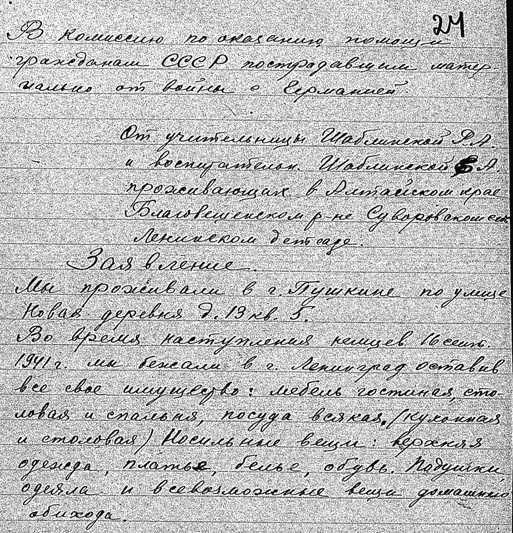 24
В комиссию по оказанию помощи
гражданам СССР пострадавшим матер-
иально от войны с Германией.
От учительницы Шаблинской Р.А.
и воспитательн. Шаблинской Е.А.
проживающих в Алтайском крае
Благовещенском р-не Суворовском
Ленинском детсаде.
Заявление.
Мы проживали в г. Пушкине по улице
Новая деревня д. 13 кв. 5.
Во время наступления немцев 16 сент.
1941 г. мы бежали в г. Ленинград оставив
все свое имущество: мебель гостиная, сто-
ловая и спальня, посуда всякая. (Кухонная
и столовая) Носильные вещи: верхняя
одежда, платье, белье, обувь. Подушки
одеяла и всевозможные вещи домашнего
обихода.